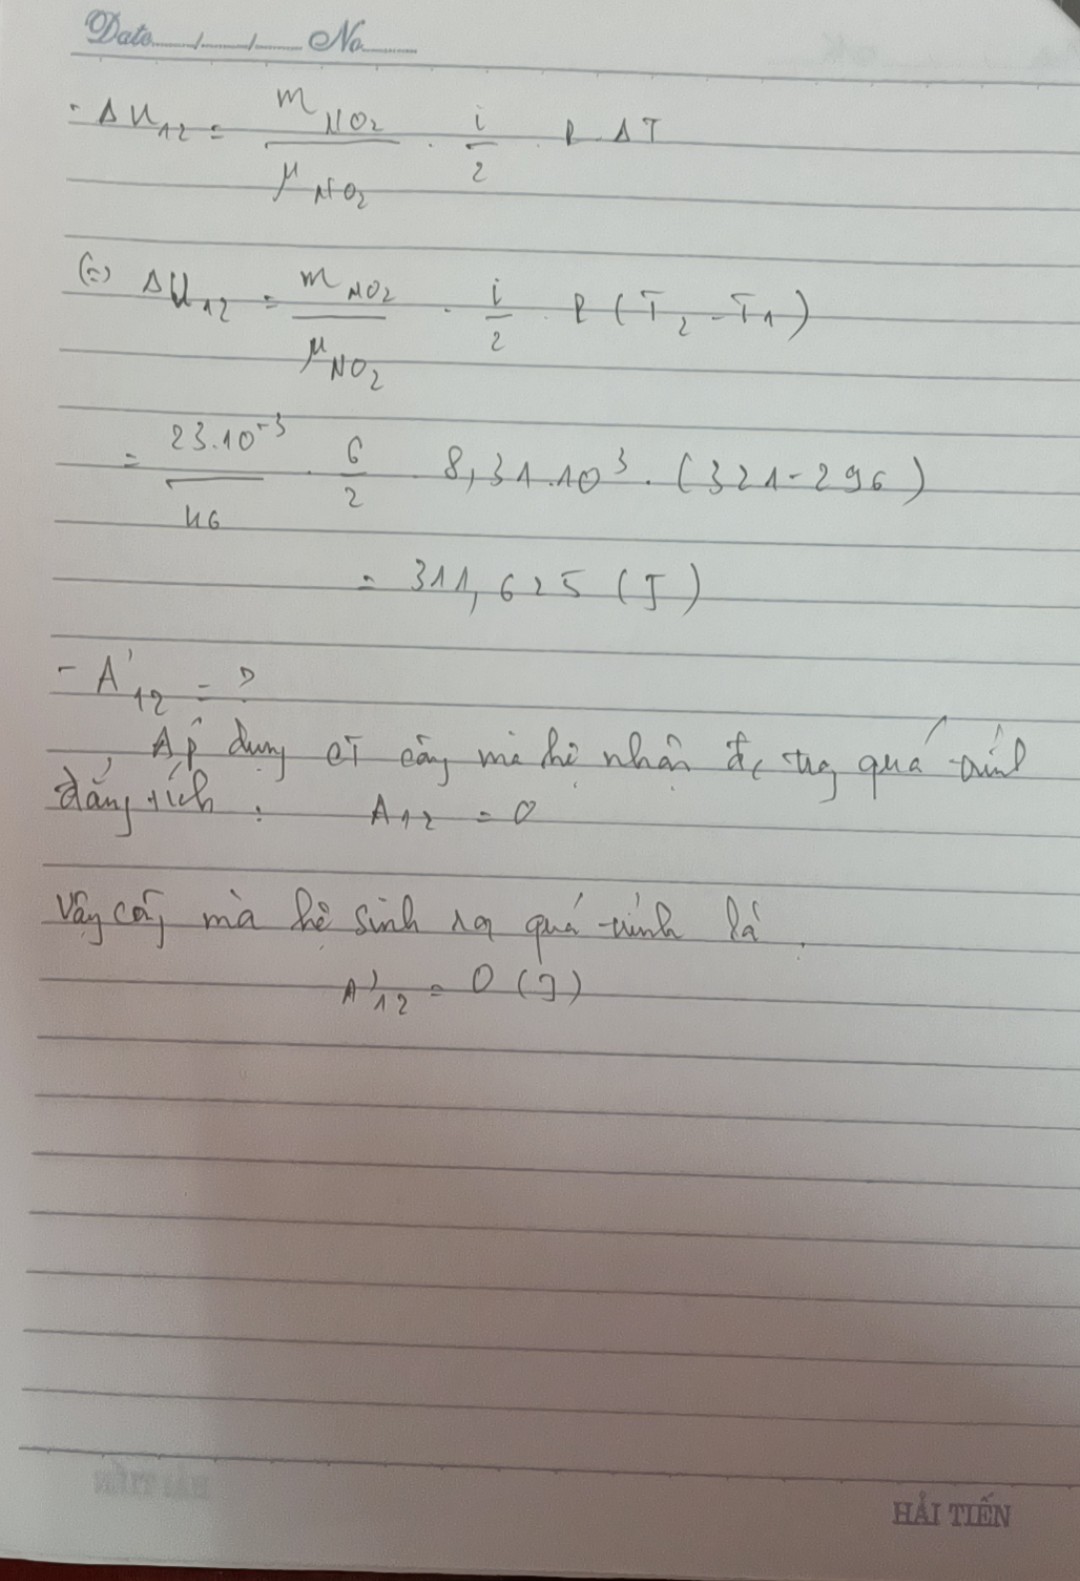 Date...../...../..... No.......
- ΔU₁₂ = m_NO₂ / μ_NO₂ . i/2 . R . ΔT
(=) ΔU₁₂ = m_NO₂ / μ_NO₂ . i/2 . R (T₂ - T₁)
= 23.10⁻³ / 46 . 6/2 . 8,31.10³ . (321 - 296)
= 311,625 (J)
- A'₁₂ = ?
Áp dụng CT công mà hệ nhận đc trg quá trình
đẳng tích : A₁₂ = 0
Vậy công mà hệ sinh ra quá trình là
A'₁₂ = 0 (J)
HẢI TIẾN